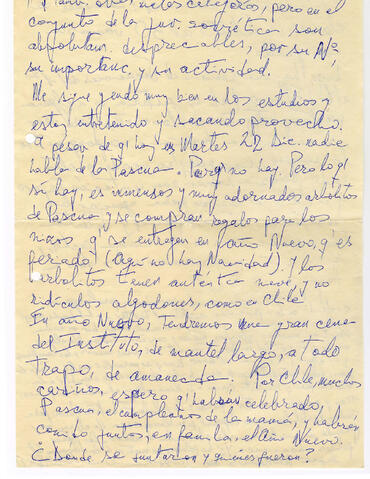 pero en el
conjunto de la juv. soviética son
absolutam. despreciables, por su Nº,
su importanc. y su actividad.
Me sigue yendo muy bien en los estudios y
estoy entretenido y sacando provecho.
A pesar de q' hoy es Martes 22 Dic. nadie
habla de la Pascua. Porq' no hay. Pero lo q'
sí hay, es inmensos y muy adornados arbolitos
de Pascua y se compran regalos para los
niños q' se entregan en año Nuevo, q' es
feriado (Aquí no hay Navidad). Y los
arbolitos tienen auténtica nieve, y no
ridículos algodones, como en Chile
En año Nuevo, Tendremos una gran cena
del Instituto, de mantel largo, a todo
Trapo, de amanecida. Por Chile, muchos
cariños, espero q' habrán celebrado,
Pascua, el cumpleaños de la mamá, y habrán
comido juntos, en familia, el Año Nuevo.
¿Dónde se juntaron y quiénes fueron?